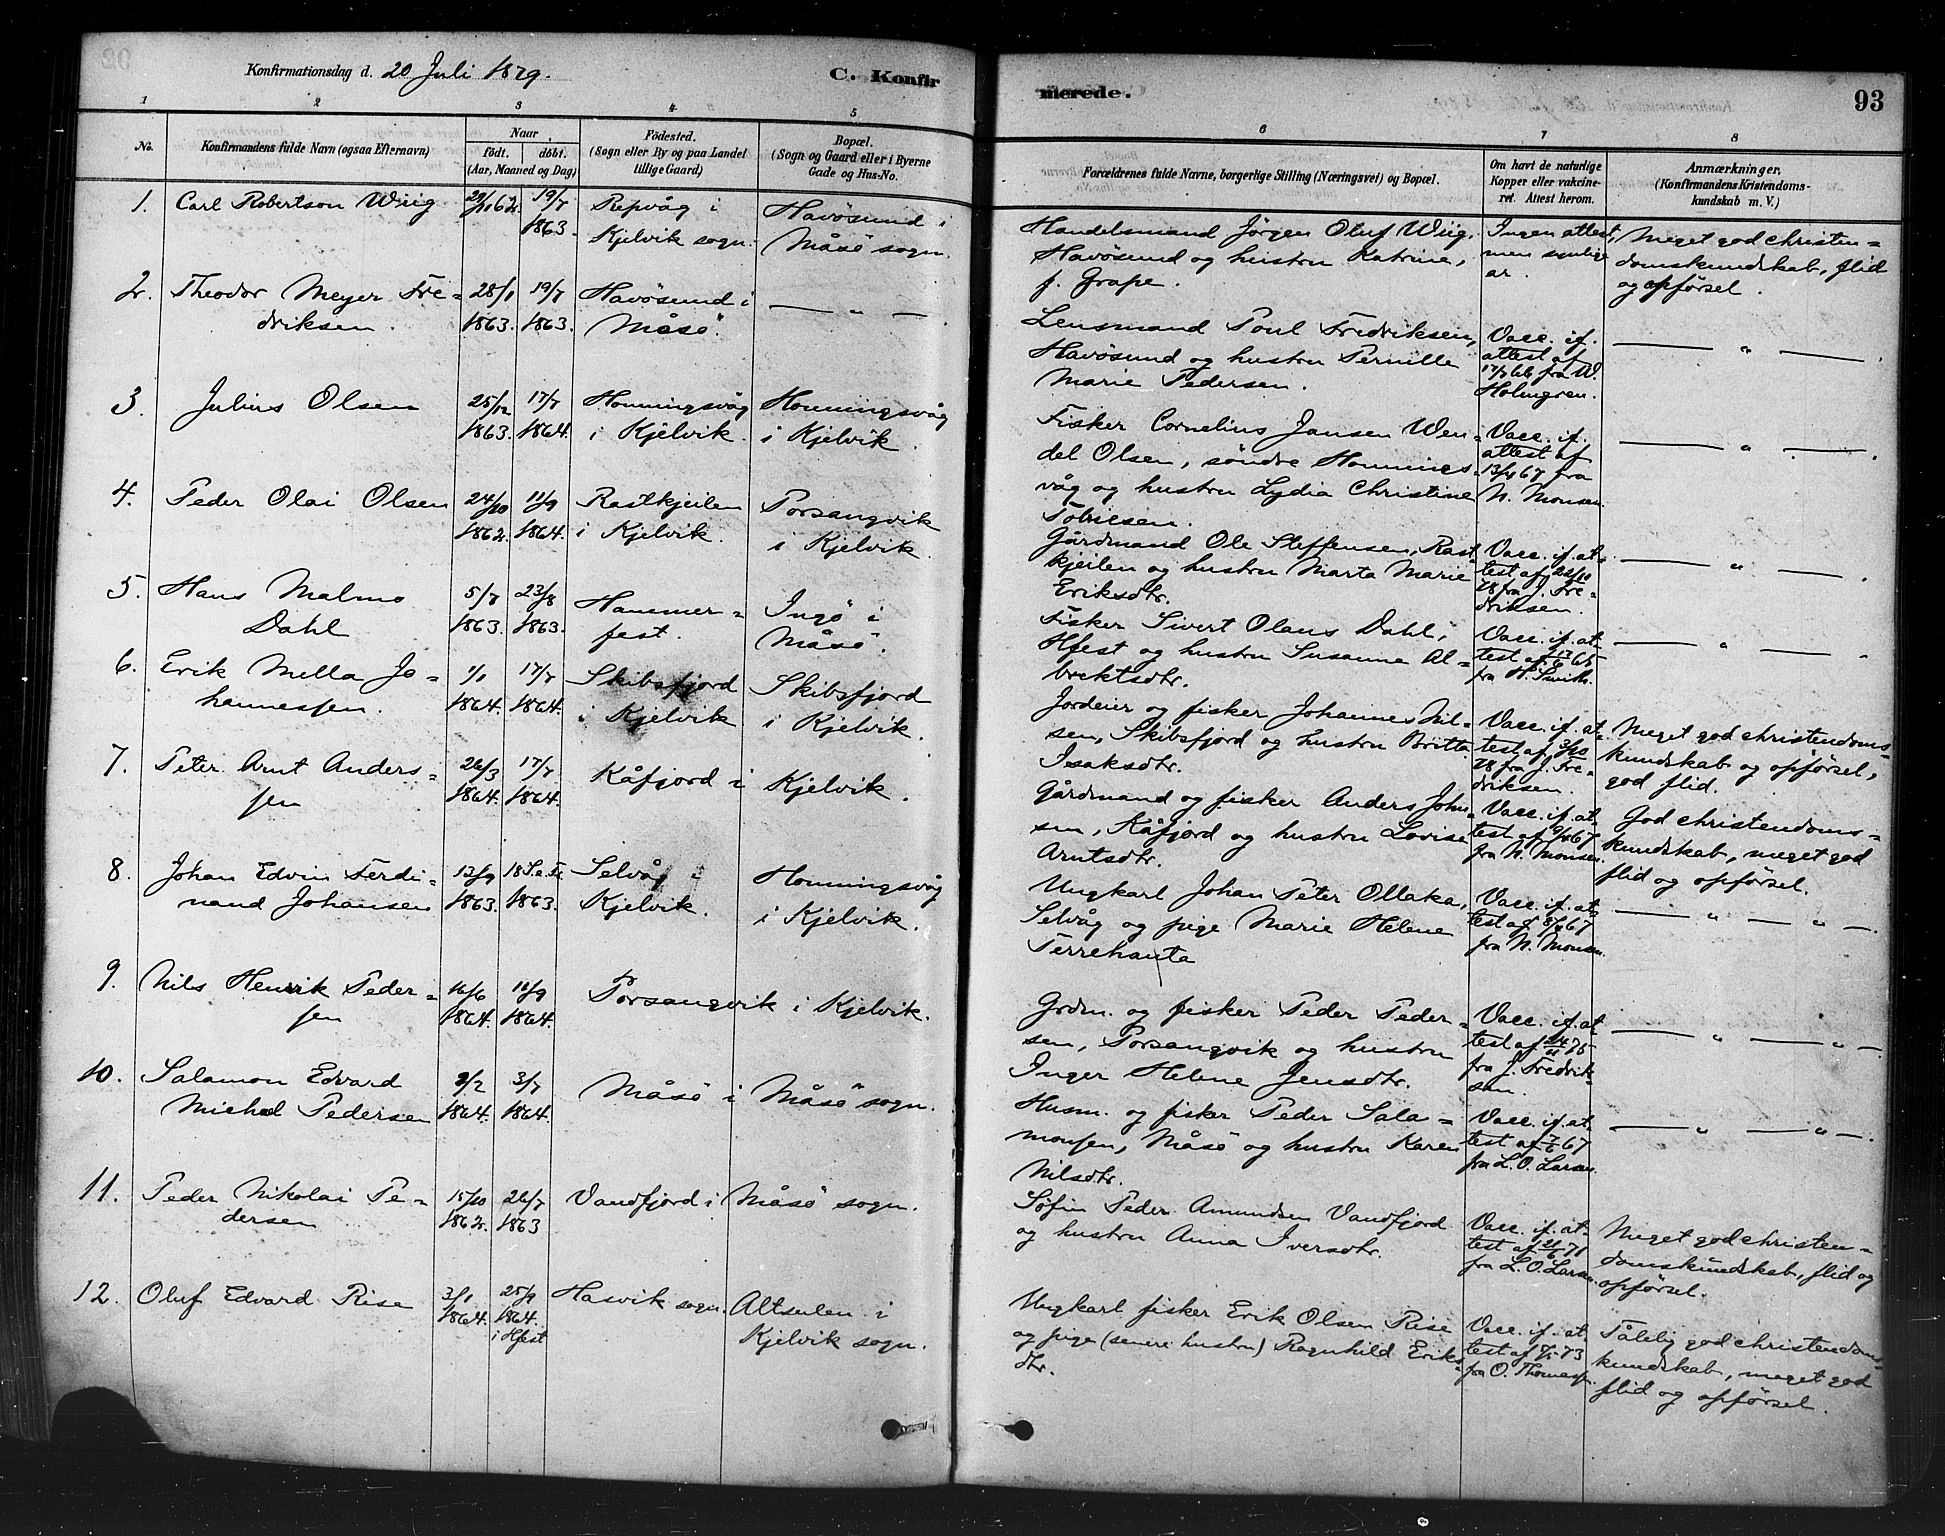 Konfirmationsdag d. 20 Juli 1879.
C. Konfirmerede.
93
1 2 3 4 5 6 7 8
No.
Konfirmandens fulde Navn (ogsaa Efternavn)
Naar
födt. döbt.
(Aar, Maaned og Dag)
Födested.
(Sogn eller By og paa Landet
tillige Gaard)
Bopæl.
(Sogn og Gaard eller i Byerne
Gade og Hus-No.
Forældrenes fulde Navne, borgerlige Stilling (Næringsvei) og Bopæl.
Om havt de naturlige
Kopper eller vakcine-
ret. Attest herom.
Anmærkninger.
(Konfirmandens Kristendoms-
kundskab m. V.)
1. Carl Robertson Wiig
62. 19/7
1863.
Repvåg i
Kjelvik sogn.
Havösund i
Måsö sogn.
Handelsmand Jörgen Oluf Wiig,
Havösund og hustru Katrine,
f. Grape.
Ingen attest,
men synlige
ar.
Meget god christen=
domskundskab, flid
og opförsel.
2. Theodor Meyer Fre=
driksen.
28/1 19/7
1863. 1863.
Havösund i
Måsö.
— " —
Lensmand Poul Fredriksen,
Havösund og hustru Pernille
Marie Pedersen.
Vacc. if.
attest af
17/7 66 fra W.
Holmgren.
— " —
3. Julius Olsen
25/12 17/7
1863. 1864.
Honningsvåg
i Kjelvik.
Honningsvåg
i Kjelvik.
Fisker Cornelius Jansen Wen=
del Olsen, söndre Honnings=
våg og hustru Lydia Christine
Tobiesen.
Vacc. if.
attest af
67 fra
N. Monsen.
— " —
4. Peder Olai Olsen
24/10 11/9
1862. 1864.
Rastkjeilen
i Kjelvik.
Porsangvik
i Kjelvik.
Gårdmand Ole Steffensen, Rast=
kjeilen og hustru Marta Marie
Eriksdtr.
Vacc. if. at=
test af 22/10
78 fra J. Fre=
driksen.
— " —
5. Hans Malmo
Dahl
5/7 23/8
1863. 1863.
Hammer=
fest.
Ingö i
Måsö.
Fisker Sivert Olaus Dahl,
Hfest og hustru Susanna Al=
brektsdtr.
Vacc. if. at=
test af 65
fra H.
— " —
6. Erik Mella Jo=
hannessen.
1/1 17/7
1864. 1864.
Skibsfjord
i Kjelvik
Skibsfjord
i Kjelvik.
Jordeier og fisker Johannes Nil=
sen, Skibsfjord og hustru Britta
Isaksdtr.
Vacc. if. at=
test af 3/10
78 fra J. Fre=
driksen.
Meget god christendoms=
kundskab og opförsel,
god flid.
7. Peter Arnt Anders=
sen
26/3 17/7
1864. 1864.
Kåfjord i Kjelvik.
Gårdmand og fisker Anders John=
sen, Kåfjord og hustru Lovise
Arntsdtr.
Vacc. if. at=
test af 67
fra N. Monsen.
God christendoms=
kundskab, meget god
flid og opförsel.
8. Johan Edvin Ferdi=
nand Johansen
13/9 18 S.e.Tr.
1863. 1863.
Selvåg i
Kjelvik.
Honningsvåg
i Kjelvik.
Ungkarl Johan Peter Ollaka,
Selvåg og pige Marie Helene
Terrehanta
Vacc. if. at=
test af 67
fra N. Monsen.
— " — " —
9. Nils Henrik Peder=
sen
16/6 11/9
1864. 1864.
Porsangvik i Kjelvik.
Grdm. og fisker Peder Peder=
sen, Porsangvik og hustru
Inger Helene Jensdtr.
Vacc. if. at
test af 75
fra J. Fredrik=
sen.
— " — " —
10. Salamon Edvard
Michael Pedersen
9/2 3/7
1864. 1864.
Måsö i Måsö sogn.
Husm. og fisker Peder Sala=
monsen, Måsö og hustru Karen
Nilsdtr.
Vacc. if. at
test af 7/6 67
fra L. O. Larsen.
— " — " —
11. Peder Nikolai Pe=
dersen
15/10 26/7
1862. 1863
Vandfjord i Måsö sogn.
Söfin Peder Amundsen Vandfjord
og hustru Anna Iversdtr.
Vacc. if. at=
test af 21/6 71
fra L. O. Larsen.
Meget god christen=
domskundskab, flid og
opförsel.
12. Oluf Edvard Rise
3/1 25/9
1864. 1864.
i Hfest
Hasvik sogn.
Altsulen i
Kjelvik sogn.
Ungkarl fisker Erik Olsen Rise
og pige (senere hustru) Ragnhild Eriks=
dtr.
Vacc. if. at
test af 73
fra O. Thomassen.
Tålelig god christendoms=
kundskab, meget god
flid og opförsel.